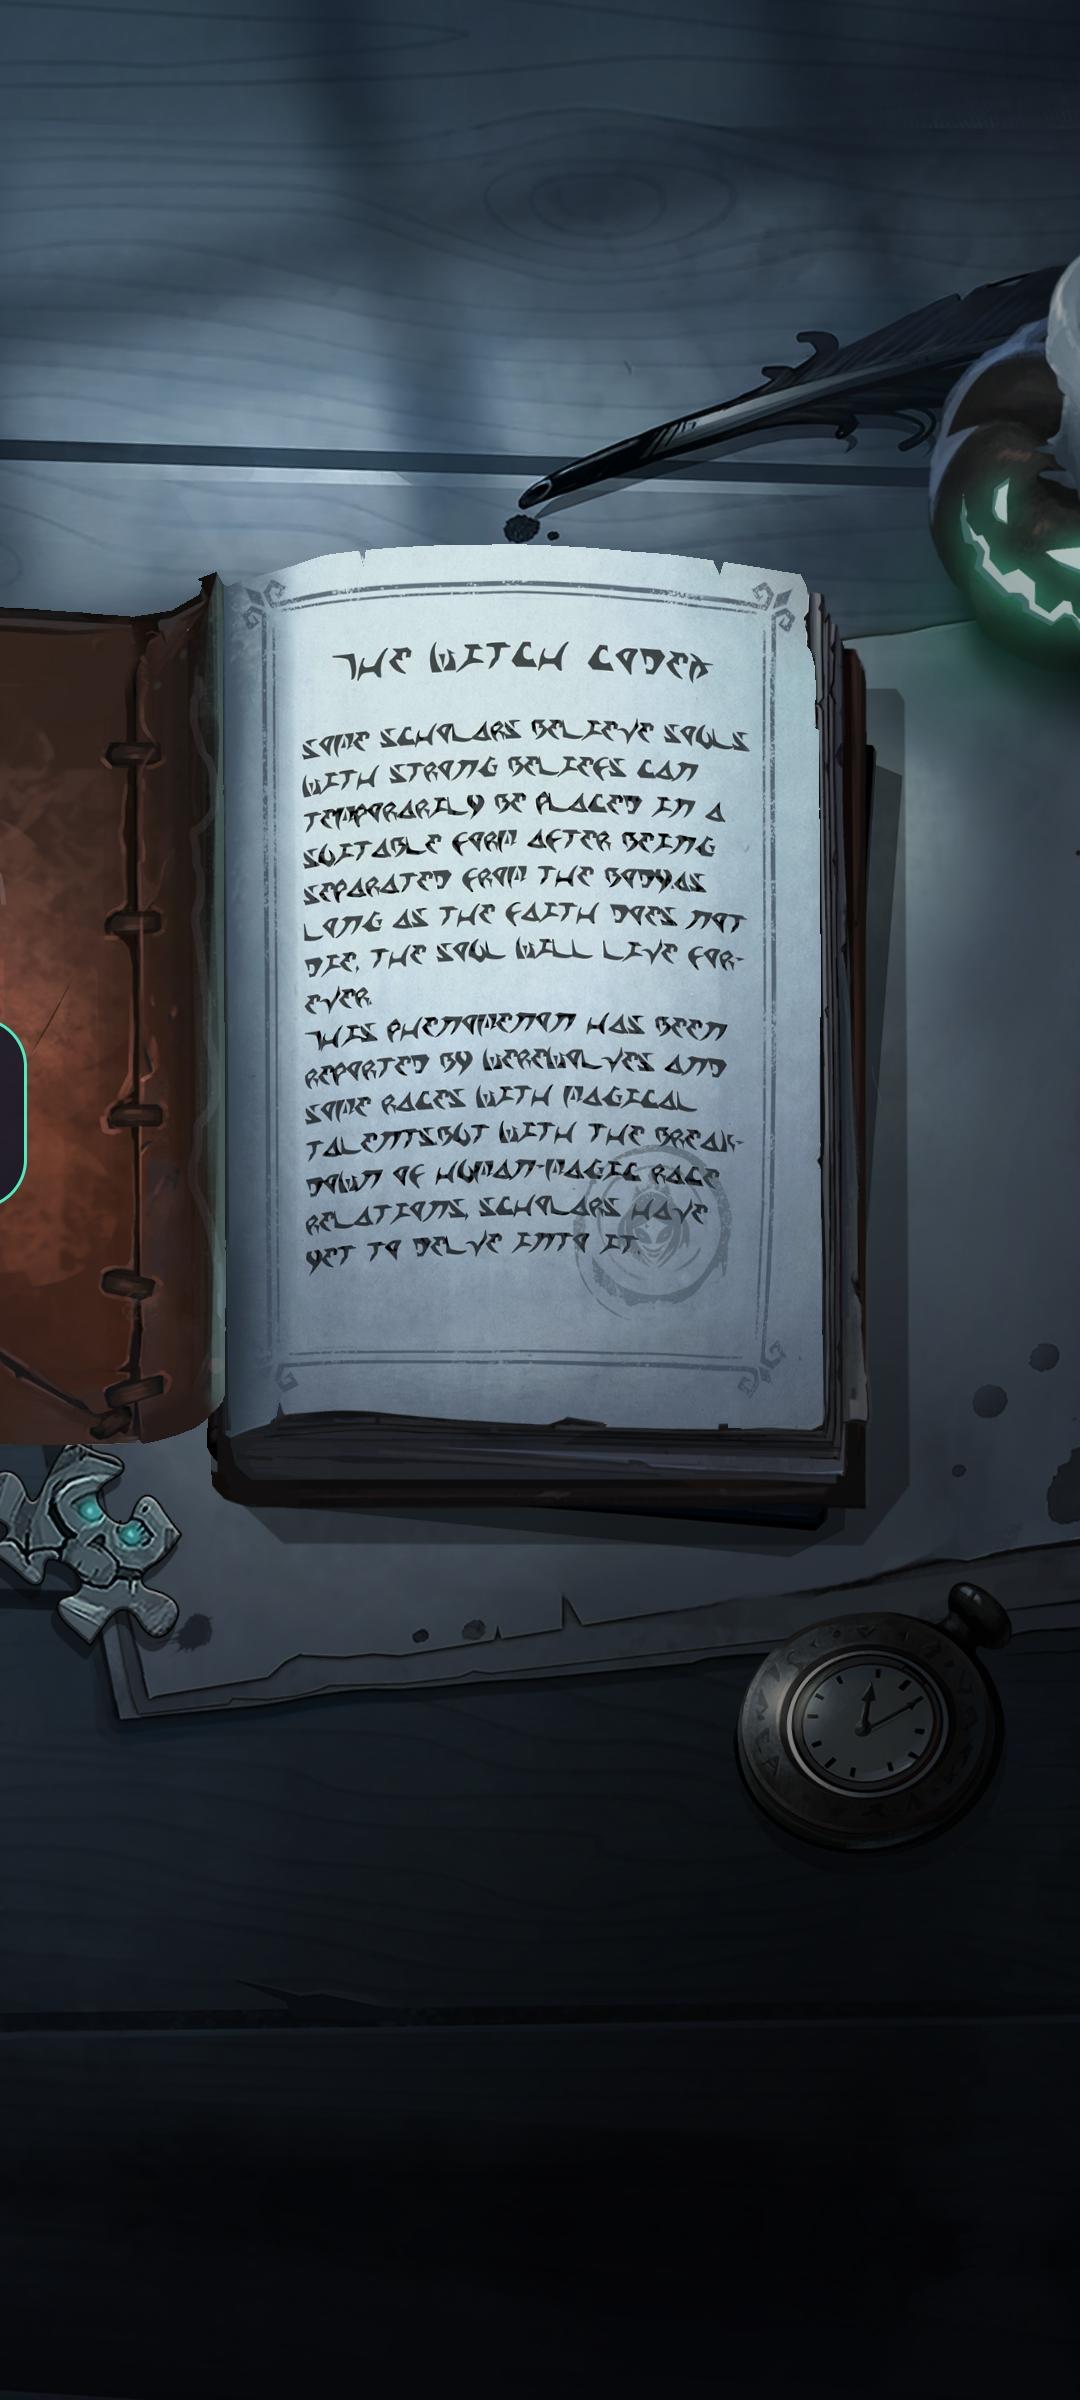 THE WITCH CODEX
SOME SCHOLARS BELIEVE SOULS
WITH STRONG BELIEFS CAN
TEMPORARILY BE PLACED IN A
SUITABLE FORM AFTER BEING
SEPARATED FROM THE BODY.AS
LONG AS THE FAITH DOES NOT
DIE, THE SOUL WILL LIVE FOR-
EVER.
THIS PHENOMENON HAS BEEN
REPORTED BY WEREWOLVES AND
SOME RACES WITH MAGICAL
TALENTS.BUT WITH THE BREAK-
DOWN OF HUMAN-MAGIC RACE
RELATIONS, SCHOLARS HAVE
YET TO DELVE INTO IT.